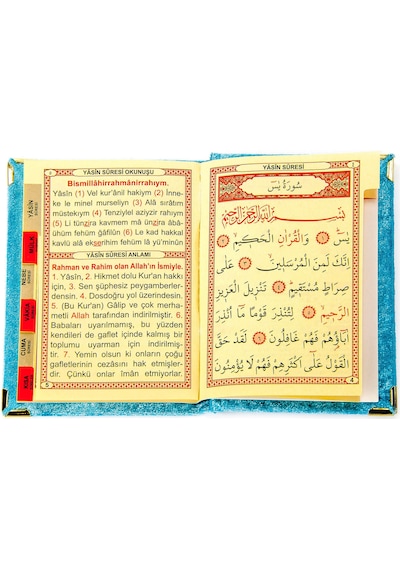 YÂSÎN SÛRESİ OKUNUŞU
Bismillâhirrahmânirrahıym.
Yâsîn (1) Vel kur'ânil hakiym (2) İnne-
ke le minel murseliyn (3) Alâ sırâtim
müstekıym (4) Tenziylel aziyzir rahıym
(5) Li tünzira kavmem mâ ünzira âbâ-
ühüm fehüm ğâfilûn (6) Le kad hakkal
kavlü alâ ekserihim fehüm lâ yü'minûn
YÂSÎN SÛRESİ ANLAMI
Rahman ve Rahim olan Allah'ın İsmiyle.
1. Yâsîn, 2. Hikmet dolu Kur'an hakkı
için, 3. Sen şüphesiz peygamberler-
densin. 4. Dosdoğru yol üzerindesin.
5. (Bu Kur'an) Gâlip ve çok rah-
meti Allah tarafından indirilmiştir. 6.
Babaları uyarılmamış, bu yüzden
kendileri de gaflet içinde kalmış bir
toplumu uyarman için indirilmiş-
tir. 7. Yemin olsun ki onların çoğu
gafletlerinin cezasını hak etmişler-
dir. Çünkü onlar îmân etmiyorlar.
5
YÂSÎN SÛRESİ
MÜLK
NEBE
CUMA
YÂSÎN SÛRESİ
سُورَةُ يٰسٓ
بِسْمِ اللّٰهِ الرَّحْمٰنِ الرَّحِيمِ
يٰسٓ ﴿١﴾ وَالْقُرْاٰنِ الْحَكِيمِ ﴿٢﴾
اِنَّكَ لَمِنَ الْمُرْسَلِينَ ﴿٣﴾ عَلٰى
صِرَاطٍ مُسْتَقِيمٍ ﴿٤﴾ تَنْزِيلَ الْعَزِيزِ
الرَّحِيمِ ﴿٥﴾ لِتُنْذِرَ قَوْمًا مَٓا اُنْذِرَ
اٰبَٓاؤُهُمْ فَهُمْ غَافِلُونَ ﴿٦﴾ لَقَدْ حَقَّ
الْقَوْلُ عَلٰٓى اَكْثَرِهِمْ فَهُمْ لَا يُؤْمِنُونَ
4